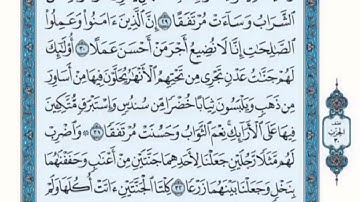 ٱلشَّرَابُ وَسَآءَتۡ مُرۡتَفَقًا ۝٢٩ إِنَّ ٱلَّذِينَ ءَامَنُواْ وَعَمِلُواْ
ٱلصَّٰلِحَٰتِ إِنَّا لَا نُضِيعُ أَجۡرَ مَنۡ أَحۡسَنَ عَمَلًا ۝٣٠ أُوْلَٰٓئِكَ
لَهُمۡ جَنَّٰتُ عَدۡنٖ تَجۡرِي مِن تَحۡتِهِمُ ٱلۡأَنۡهَٰرُ يُحَلَّوۡنَ فِيهَا مِنۡ أَسَاوِرَ
مِن ذَهَبٖ وَيَلۡبَسُونَ ثِيَابًا خُضۡرٗا مِّن سُندُسٖ وَإِسۡتَبۡرَقٖ مُّتَّكِـِٔينَ
فِيهَا عَلَى ٱلۡأَرَآئِكِۚ نِعۡمَ ٱلثَّوَابُ وَحَسُنَتۡ مُرۡتَفَقٗا ۝٣١ وَٱضۡرِبۡ
لَهُم مَّثَلٗا رَّجُلَيۡنِ جَعَلۡنَا لِأَحَدِهِمَا جَنَّتَيۡنِ مِنۡ أَعۡنَٰبٖ وَحَفَفۡنَٰهُمَا
بِنَخۡلٖ وَجَعَلۡنَا بَيۡنَهُمَا زَرۡعٗا ۝٣٢ كِلۡتَا ٱلۡجَنَّتَيۡنِ ءَاتَتۡ أُكُلَهَا وَلَمۡ